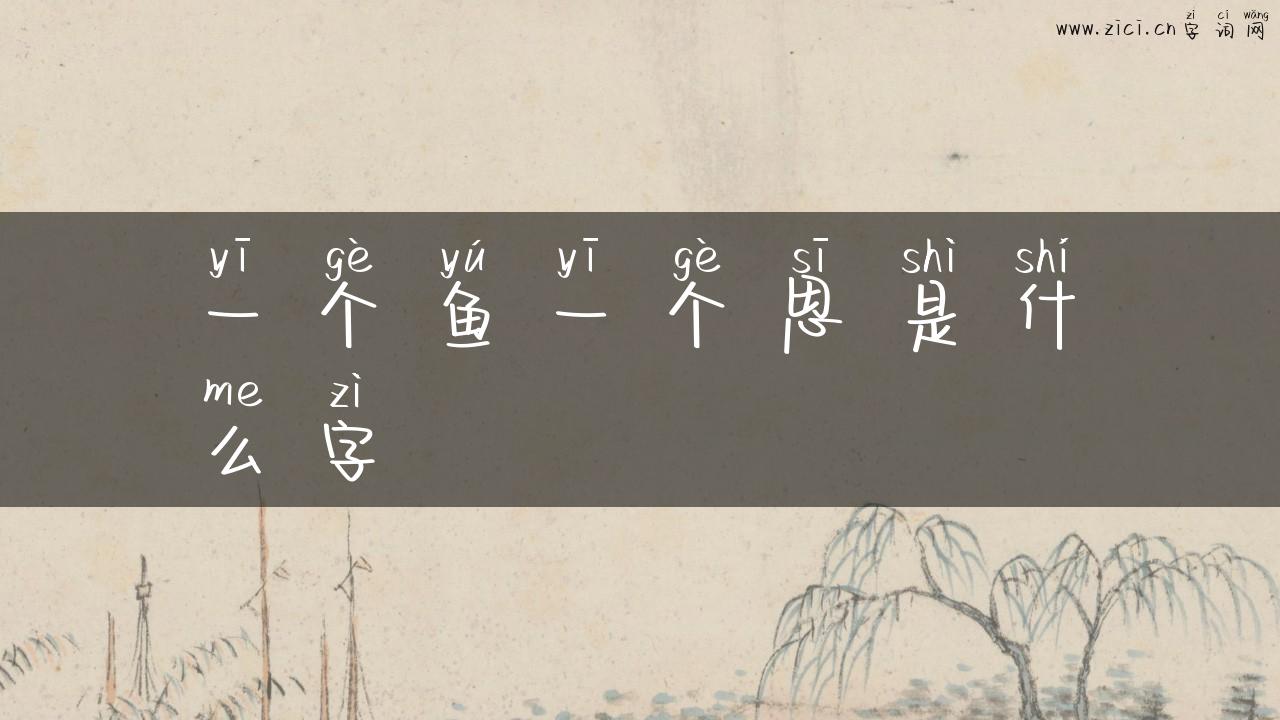 www.zici.cn zì cí wǎng
字 词 网
yī gè yú yī gè sī shì shí
一 个 鱼 一 个 思 是 什
me zì
么 字